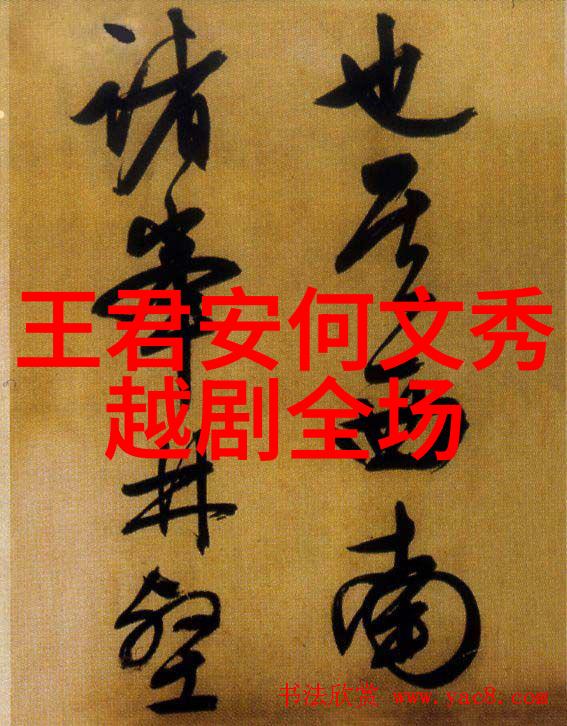 也其西南
諸峯林壑
王君安何文秀
越剧全场
书法欣赏 www.yac8.com